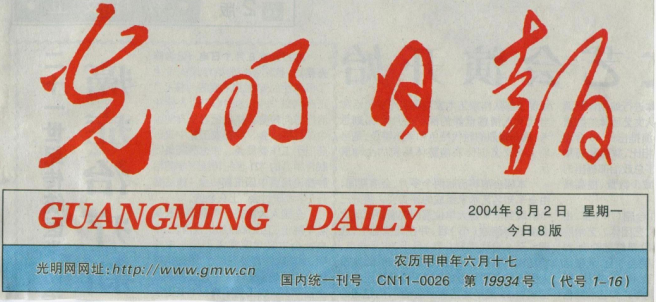 光明日报
GUANGMING DAILY
2004年8月2日 星期一
今日8版
光明网网址:http://www.gmw.cn
农历甲申年六月十七
国内统一刊号 CN11-0026 第19934号 (代号1-16)